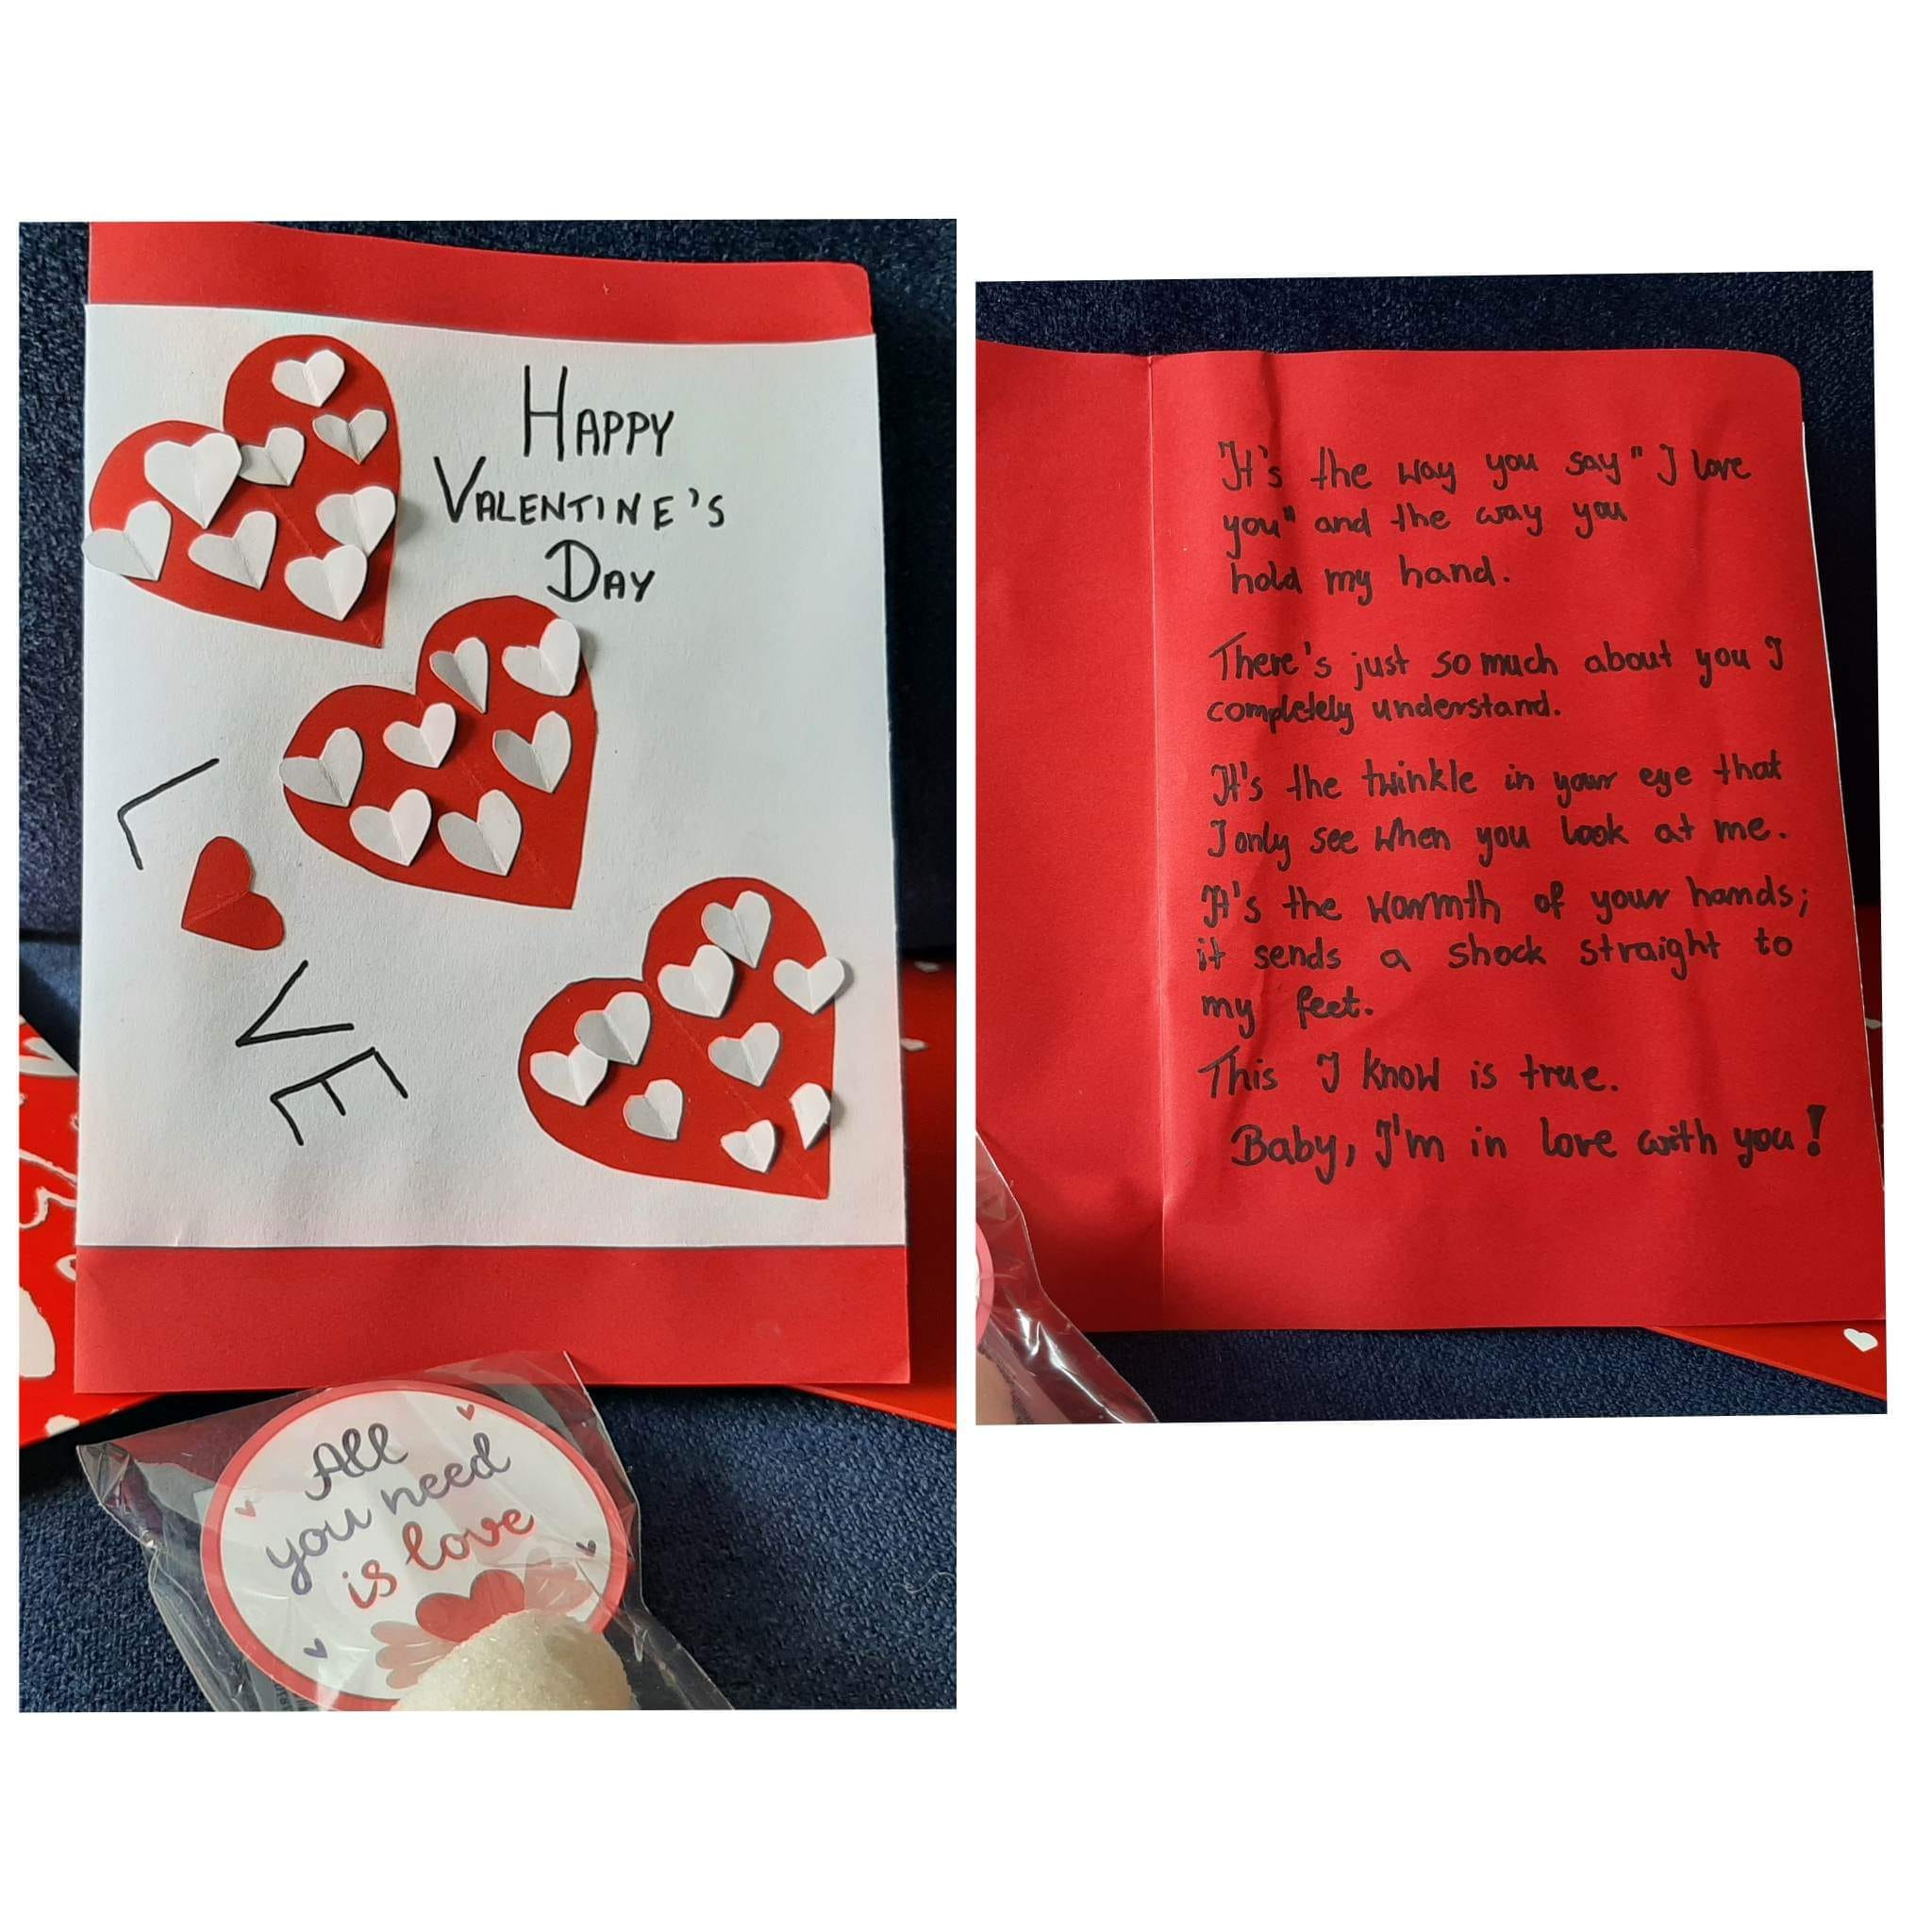 HAPPY
VALENTINE'S
DAY
L VE
All
you need
is love
It's the way you say "I love
you" and the way you
hold my hand.
There's just so much about you I
completely understand.
It's the twinkle in your eye that
I only see when you look at me.
It's the warmth of your hands;
it sends a shock straight to
my feet.
This I know is true.
Baby, I'm in love with you!